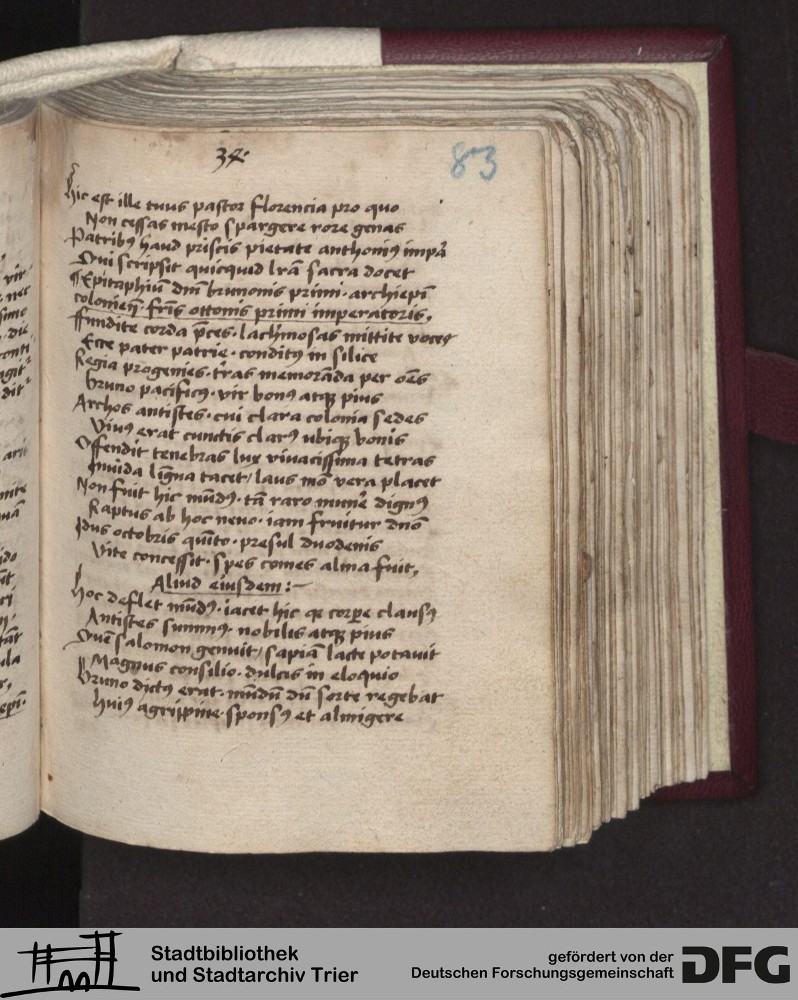 34.
83
hic est ille tuus pastor florencia pro quo
Non cessas mesto spargere rore genas
Patribꝰ haud priscis pietate anthoniꝰ impar
Qui scripsit quicquid lrā sacra docet
¶ Epitaphiū dm̄ brunonis primi. archiepī
colonien̄. fr̄is ottonis primi imperatoris,
ffundite corda p̄ces. lachrimosas mittite voces
Ecce pater patrie. conditꝰ in silice
Regia progenies. t̄ras memorāda per oēs
bruno pacificꝰ. vir bonꝰ atqꝫ pius
Archos antistes. cui clara colonia sedes
Viuꝰ erat cunctis clarꝰ ubiqꝫ bonis
Offendit tenebras lux viuacissima tetras
Inuida līgna tacet, laus mō vera placet
Non fuit hic mūdꝰ. tā raro mun̄e dignꝰ
Raptus ab hoc neuo. iam fruitur dnō
Idus octobris quīto. presul duodenis
Vite concessit. spes comes alma fuit,
Aliud eiusdem:~
Hoc deflet mūdꝰ. iacet hic qꝫ corpe clausꝰ
Antistes summꝰ. nobilis atqꝫ pius
Quē salomon genuit, sapiā lacte potauit
Magnus consilio. dulcis in eloquio
Bruno dictꝰ erat. mūdū dū sorte regebat
huiꝰ agrippine. sponsꝰ et almigere
Stadtbibliothek
und Stadtarchiv Trier
gefördert von der
Deutschen Forschungsgemeinschaft
DFG